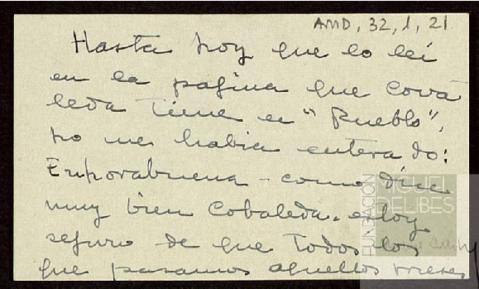 AMD, 32, 1, 21
Hasta hoy que lo leí
en la pagina que Cova
leda tiene en "Pueblo",
no me habia enterado:
Enhorabuena - como dice
muy bien Cobaleda. estoy
seguro de que todos los
que pasamos aquellos meses
FUNDACIÓN
MIGUEL
DELIBES